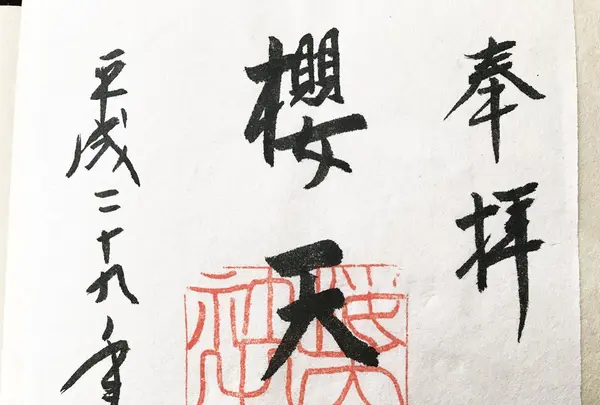 奉拝
櫻天
平成二十九年